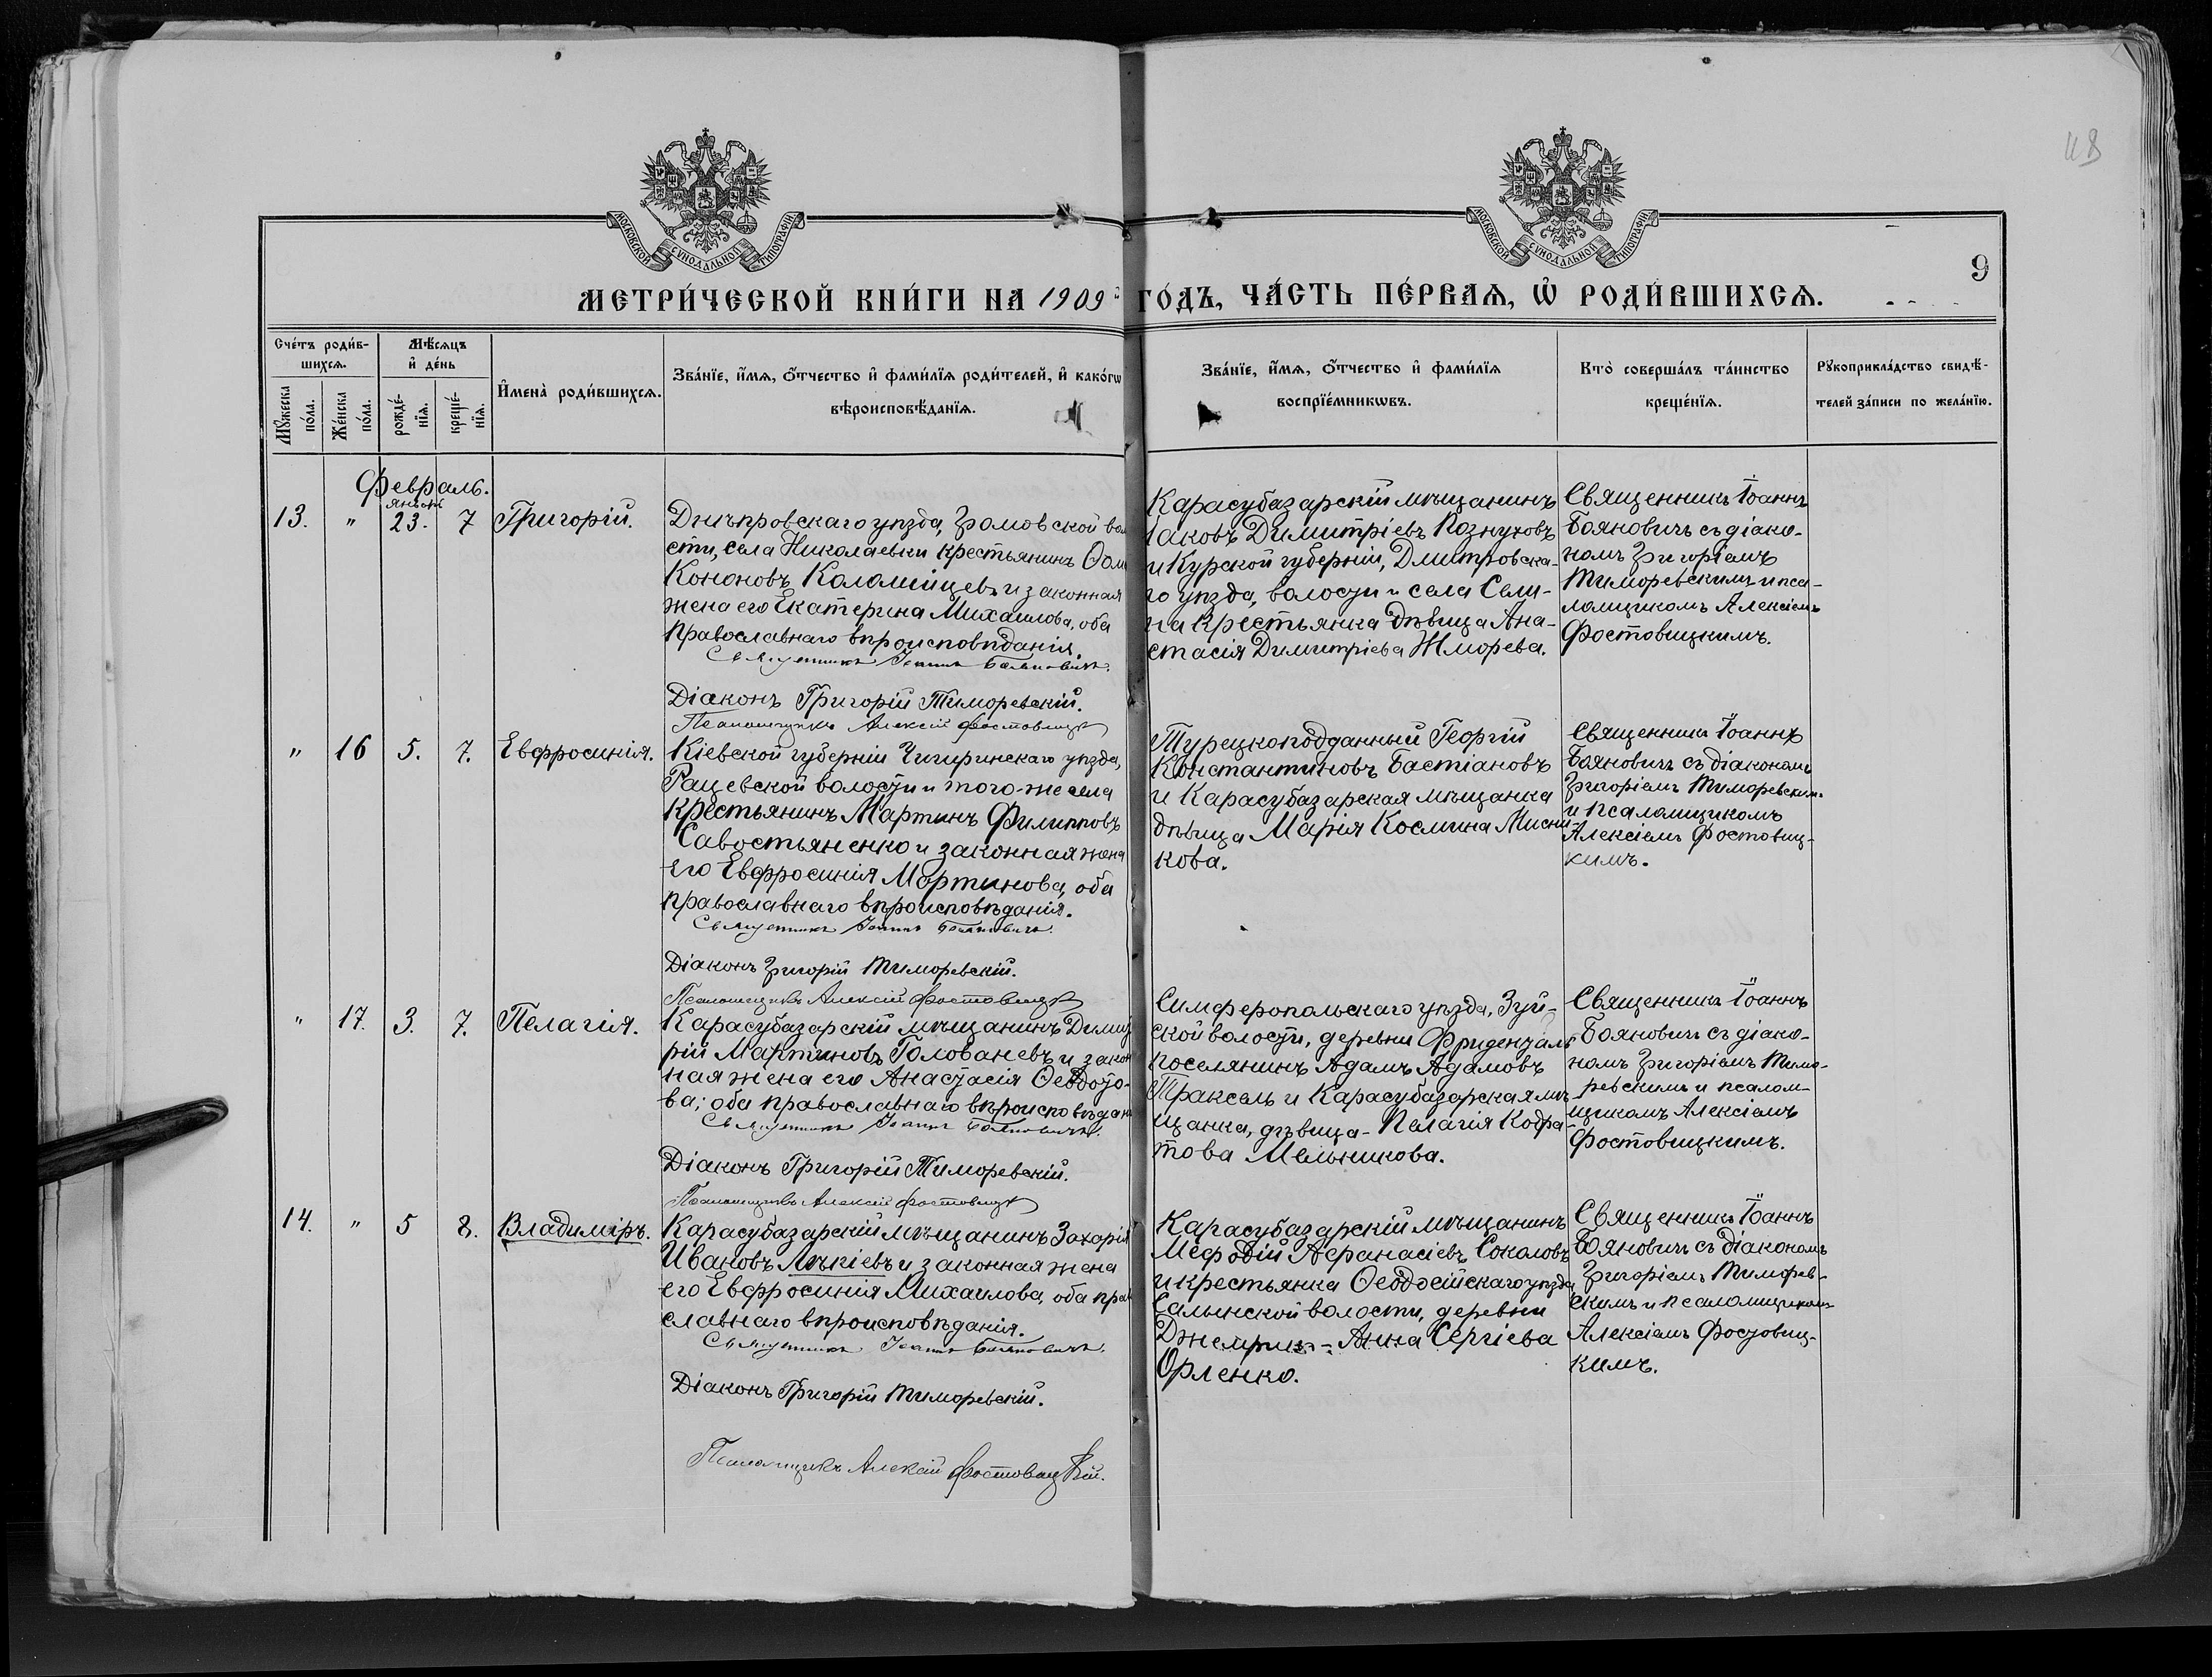 48
МОСКОВСКОЙ СѴНОДАЛЬНОЙ ТИПОГРАФІИ
МОСКОВСКОЙ СѴНОДАЛЬНОЙ ТИПОГРАФІИ
9
МЕТРИ́ЧЕСКОЙ КНИ́ГИ НА 1909й ГО́ДЪ, ЧА́СТЬ ПЕ́РВАѦ, Ѡ҆ РОДИ́ВШИХСѦ.
Сче́тъ роди́в-
шихсѧ.
Мѣ́сѧцъ
и҆ де́нь
Мꙋ́жеска
по́ла.
Же́нска
по́ла.
рожде́-
нїѧ.
креще́-
нїѧ.
И҆мена̀ роди́вшихсѧ.
Зва́нїе, и҆́мѧ, ѻ҆́тчество и҆ фами́лїѧ роди́телей, и҆ како́гѡ
вѣроисповѣ́данїѧ.
Зва́нїе, и҆́мѧ, ѻ҆́тчество и҆ фами́лїѧ
воспрїе́мникѡвъ.
Кто̀ соверша́лъ та́инство
креще́нїѧ.
Рꙋкоприкла́дство свидѣ́-
телей за́писи по жела́нїю.
Февраль.
13. " 23. 7 Григорій.
Днѣпровскаго уѣзда, Громовской вол
сти, села Николаевки крестьянинъ Ѳом
Кононовъ Коломійцевъ и законная
жена его Екатерина Михаилова, оба
православнаго вѣроисповѣданія.
Священникъ Іоаннъ Бояновичъ.
Діаконъ Григорій Тиморевскій.
Псаломщикъ Алексій Фостовицк
Карасубазарскій мѣщанинъ
Іаковъ Димитріевъ Познуховъ
и Курской губерніи, Дмитровска-
го уѣзда, волости и села Сели-
на крестьянка дѣвица Ана-
стасія Димитріева Жморева.
Священникъ Іоаннъ
Бояновичъ съ діако-
номъ Григоріемъ
Тиморевскимъ и пса-
ломщикомъ Алексіемъ
Фостовицкимъ.
" 16 5. 7. Евфросинія.
Кіевской губерніи Чигиринскаго уѣзда,
Рацевской волости и того-же села
крестьянинъ Мартинъ Филипповъ
Савостьяненко и законная жена
его Евфросинія Мартинова, оба
православнаго вѣроисповѣданія.
Священникъ Іоаннъ Бояновичъ.
Діаконъ Григорій Тиморевскій.
Псаломщикъ Алексій Фостовицк
Турецкоподданный Георгій
Константиновъ Бастіановъ
и Карасубазарская мѣщанка
дѣвица Марія Космина Мисни-
кова.
Священникъ Іоаннъ
Бояновичъ съ діакономъ
Григоріемъ Тиморевским.
и псаломщикомъ
Алексіемъ Фостовиц-
кимъ.
" 17. 3. 7. Пелагія.
Карасубазарскій мѣщанинъ Димит
рій Мартиновъ Голованевъ и закон
ная жена его Анастасія Ѳеодото-
ва; оба православнаго вѣроисповѣдан
Священникъ Іоаннъ Бояновичъ.
Діаконъ Григорій Тиморевскій.
Псаломщикъ Алексій Фостовицк
Симферопольскаго уѣзда, Зуй-
ской волости, деревни Фриденталь
поселянинъ Адамъ Адамовъ
Траксель и Карасубазарская мѣ-
щанка, дѣвица - Пелагія Кодра-
това Мельникова.
Священникъ Іоаннъ
Бояновичъ съ діако-
номъ Григоріемъ Тимо-
ревскимъ и псалом-
щикомъ Алексіемъ
Фостовицкимъ.
14. " 5 8. Владиміръ.
Карасубазарскій мѣщанинъ Захарій
Ивановъ Мѣкіевъ и законная жена
его Евфросинія Михаилова, оба прав
славнаго вѣроисповѣданія.
Священникъ Іоаннъ Бояновичъ.
Діаконъ Григорій Тиморевскій.
Псаломщикъ Алексій Фостовицкій.
Карасубазарскій мѣщанинъ
Меѳодій Аѳанасіевъ Соколовъ
и крестьянка Ѳеодосійскаго уѣзда
Салынской волости, деревни
- Анна Сергіева
Орленко.
Священникъ Іоаннъ
Бояновичъ съ діакономъ
Григоріемъ Тиморев-
скимъ и псаломщиком
Алексіемъ Фостовиц-
кимъ.